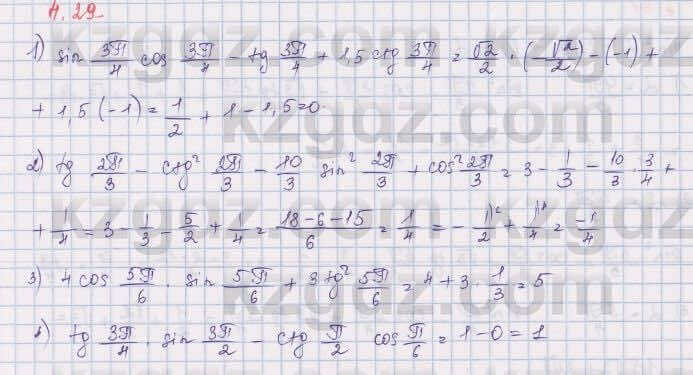 4.29
1) sin 3π/4 cos 3π/4 - tg 3π/4 + 1,5 ctg 3π/4 = √2/2 · (-√2/2) - (-1) +
+ 1,5 (-1) = 1/2 + 1 - 1,5 = 0
2) tg 2π/3 - ctg² 2π/3 - 10/3 sin² 2π/3 + cos² 2π/3 = 3 - 1/3 - 10/3 · 3/4 +
+ 1/4 = 3 - 1/3 - 5/2 + 1/4 = (18-6-15)/6 = 1/4 = - 1/2 + 1/4 = -1/4
3) 4 cos 5π/6 · sin 5π/6 + 3 tg² 5π/6 = 4 + 3 · 1/3 = 5
4) tg 3π/4 · sin 3π/2 - ctg π/2 cos π/6 = 1 - 0 = 1
kzgdz.com